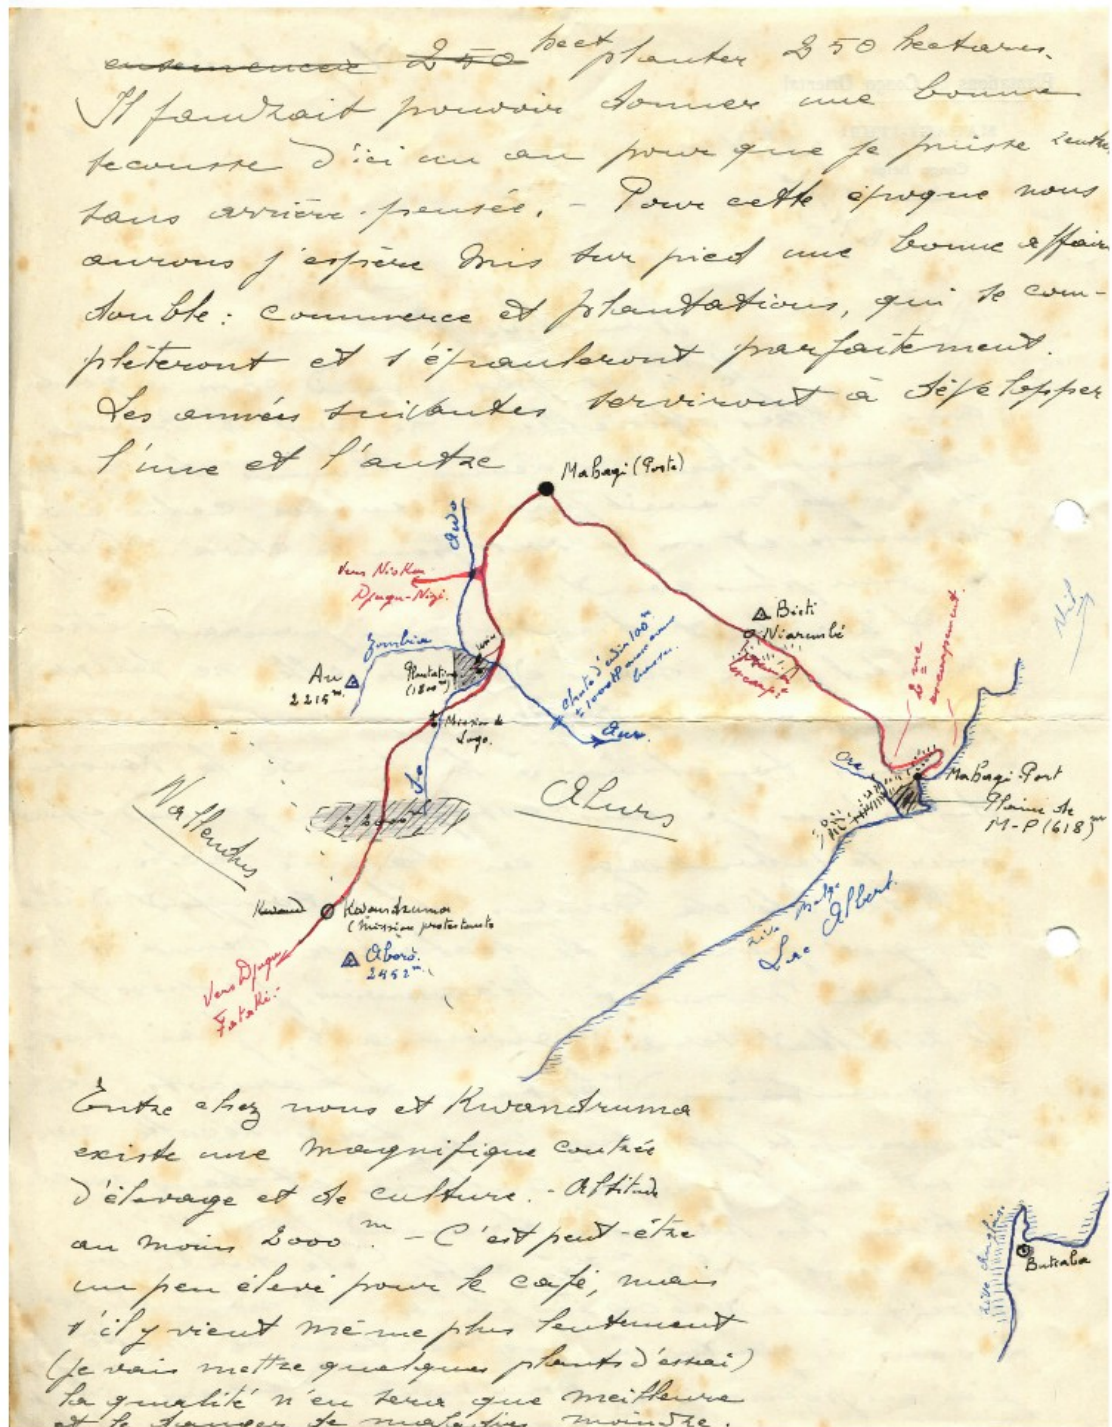 ensemencer 250 hect planter 250 hectares.
Il faudrait pouvoir donner une bonne
secousse d'ici un an pour que je puisse rentrer
sans arrière-pensée. - Pour cette époque nous
aurons j'espère mis sur pied une bonne affair
double : commerce et plantations, qui se com-
plèteront et s'épauleront parfaitement.
Les années suivantes serviront à développer
l'une et l'autre
Mahagi (Poste)
Awo
Vers Nioka
Djugu-Nizi.
Zumbia
Au
2215 m.
Plantation
(1800 m)
usine
Mission de
Logo.
chute d'environ 100 m
± 1000 HP
Aur.
Bisti
Niarembé
escarpt
2me
escarpement.
Nil
Mahagi-Port
Plaine de
M-P (618) m
Alurs
Walendus
± 2000 m
Kwand
Kwandruma
(Mission protestante
Aboro.
2452 m.
Vers Djugu
Fataki.-
rive belge
Lac Albert.
Entre chez nous et Kwandruma
existe une magnifique contrée
d'élevage et de culture. - Altitude
au moins 2000 m. - C'est peut-être
un peu élevé pour le café, mais
s'il y vient même plus lentement
(je vais mettre quelques plants d'essai)
la qualité n'en sera que meilleure
et le danger de maladies moindre.
rive Anglaise
Butiaba